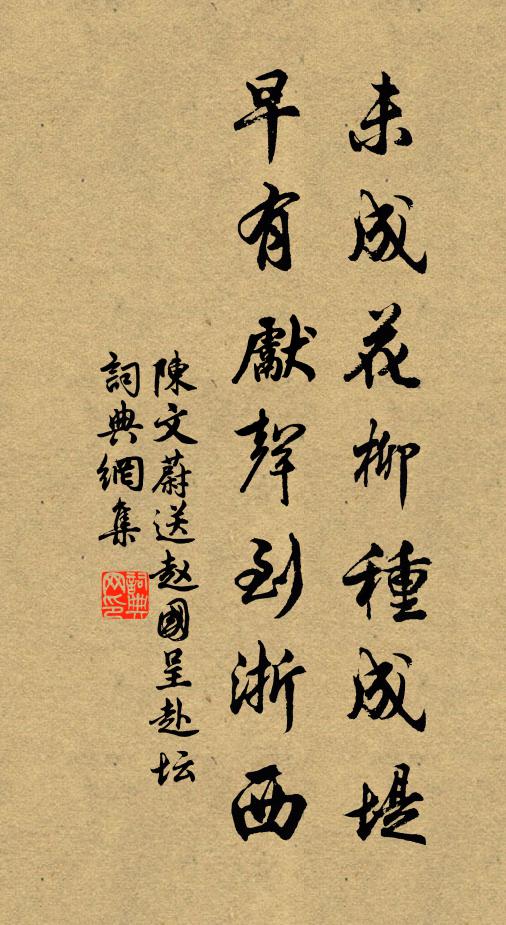 未成花柳種成堤
早有獻聲到浙西
陳文蔚送赵國呈赴坛
詞典網集
詞典網印